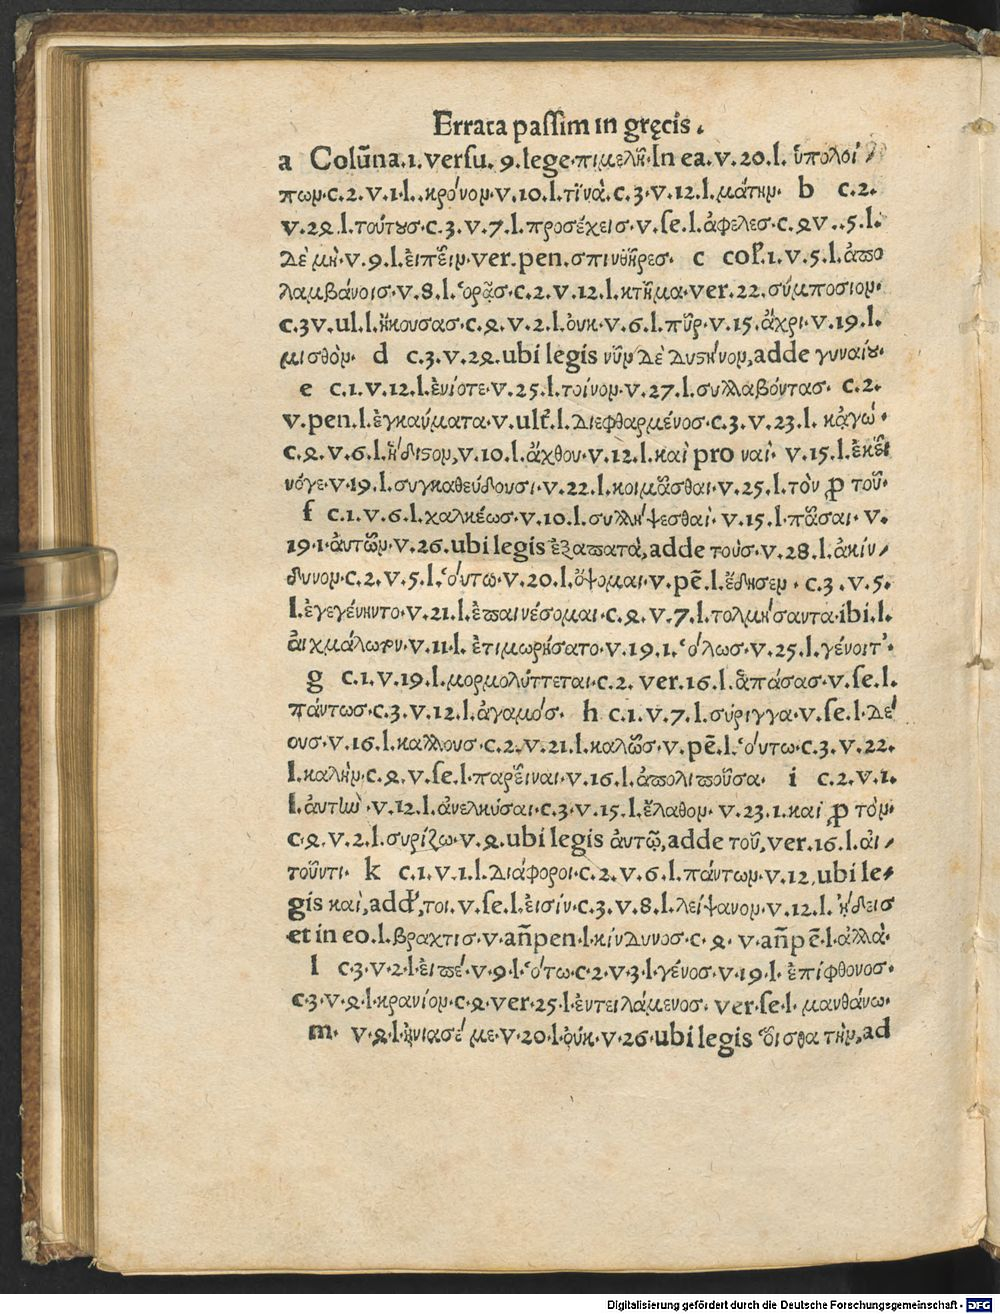 Errata passim in gręcis.
a Colūna.1.versu.9.lege.πιμελῆ.In ea.v.20.l. ὑπολοί
πων.c.2.v.1.l..κρόνον.v.10.l.τϊνὰ.c.3.v.12.l.μάτην. b c.2.
v.24.l.τούτους.c.3.v.7.l.προσέχεις.v.se.l.ἀφελες.c.4v..5.l.
Δὲ μὴ.v.9.l.ἐιπεῖν.ver.pen.σπινθῆρες. c col.1.v.5.l.ἀπο
λαμβάνοις.v.8.l.ὁρᾷς.c.2.v.12.l.κτῆμα.ver.22.σύμποσιον.
c.3v.ul.l.ἤκουσας.c.4.v.2.l.ὀυκ.v.6.l.πῦρ.v.15.ἄχρι.v.19.l.
μισθὸν. d c.3.v.24.ubi legis νῦν Δὲ Δυστήνον,adde γυναίου.
e c.1.v.12.l.ἐνίοτε.v.25.l.τοίνον.v.27.l.συλλαβόντας. c.2.
v.pen.l.ἐγκαύματα.v.ult.l.Διεφθαρμένος.c.3.v.23.l. κᾀγώ.
c.4.v.6.l.ἥδιστον,v.10.l.ἄχθου.v.12.l.καὶ pro ναί. v.15.l.ἐκεῖ
νόγε.v.19.l.συγκαθεύδουσι.v.22.l.κοιμᾶσθαι.v.25.l.τὸν ꝓ τοῦ.
f c.1.v.6.l.χαλκέως.v.10.l.συλλήψεσθαι. v.15.l.πᾶσαι. v.
19.1.ἀυτῶν.v.26.ubi legis ἐξαπατὰ,adde τοὺς.v.28.l.ἀκίν
δυνον.c.2.v.5.l.ὁύτω.v.20.l.ὄψομαι.v.pē.l.ἔδησεν. c.3.v.5.
l.ἐγεγένηντο.v.21.l.ἐπαινέσομαι.c.4.v.7.l.τολμήσαντα.ibi.l.
ἀιχμάλωτον.v.11.l. ἐτιμωρήσατο.v.19.1.ὅλως.v.25.l.γένοιτ'.
g c.1.v.19.l.μορμολύττεται.c.2. ver.16.l.ἁπάσας.v.se.l.
πάντως.c.3.v.12.l.ἀγαμός. h c.1.v.7.l.σύριγγα.v.se.l.Δέ
ους.v.16.l.καλλους.c.2.v.21.l.καλῶς.v.pē.l.ὁύτω.c.3.v.22.
l.καλὴν.c.4.v.se.l.παρεῖναι.v.16.l.ἀπολιποῦσα. i c.2.v.1.
l.ἀυτῳ.v.12.l.ἀνελκύσαι.c.3.v.15.l.ἔλαθον.v.23.1.και ꝓ τὸν.
c.4.v.2.l.συρίζω.v.4.ubi legis ἀυτῷ,adde τοῦ,ver.16.l.ἀι
τοῦντι. k c.1.v.1.l.Διάφοροι.c.2.v.6.l.πάντων.v.12,ubi le
gis καὶ,add,τοι.v.se.l.ἐισίν.c.3.v.8.l.λείψανον.v.12.l.ᾔδεις
et in eo.l.βραχτις.v.añpen.l.κίνΔυνος.c.4. v.añpē.l.ἀλλὰ.
l c.3.v.2.l.ἐιπέ.v.9.l.ὅτω.c.2.v.3.l.γένος.v.19.l. ἐπίφθονος.
c.3.v.4.l.κρανίον.c.4.ver.25.l.ἐντειλάμενος. ver.se.l. μανθάνω.
m. v.4.l.ἠνιασέ με.v.20.l.ὀύκ.v.26.ubi legis τὴν,ad
Digitalisierung gefördert durch die Deutsche Forschungsgemeinschaft - DFG